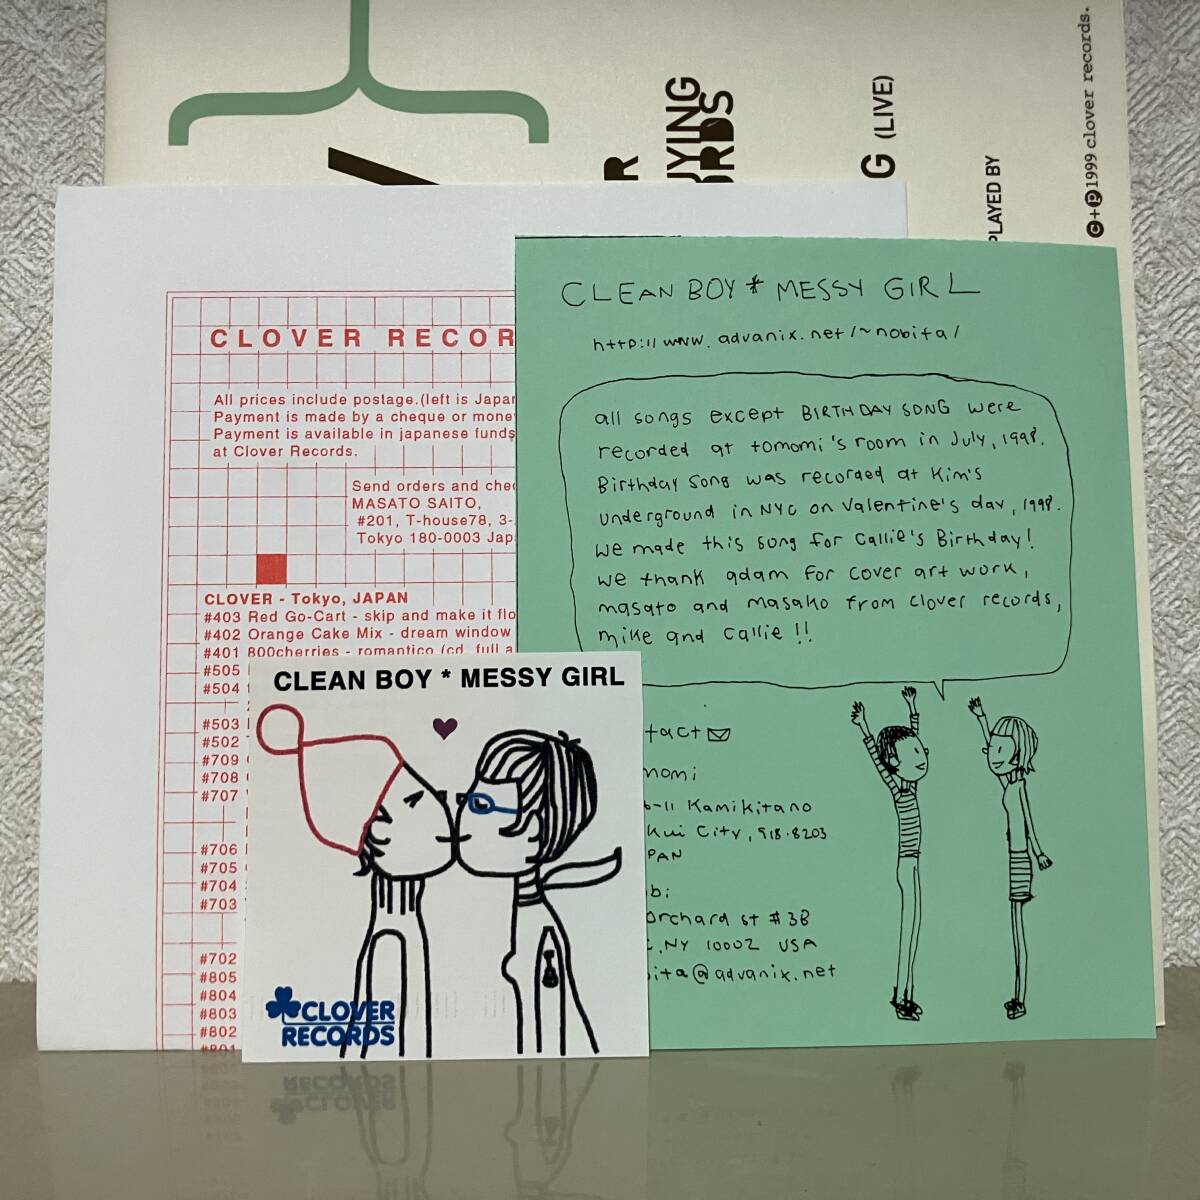 UYING
RDS
G (LIVE)
PLAYED BY
c+p1999 clover records.
CLOVER RECOR
All prices include postage.(left is Japa
Payment is made by a cheque or mone
Payment is available in japanese funds
at Clover Records.
Send orders and che
MASATO SAITO,
#201, T-house78, 3-
Tokyo 180-0003 Jap
CLOVER - Tokyo, JAPAN
#403 Red Go-Cart - skip and make it flo
#402 Orange Cake Mix - dream window
#401 800cherries - romantico (cd, full a
#505
#504
#503
#502
#709
#708
#707
#706
#705
#704
#703
#702
#805
#804
#803
#802
#801
CLEAN BOY * MESSY GIRL
http://www.advanix.net/~nobita/
all songs except BIRTHDAY SONG were
recorded at tomomi's room in July, 1998.
Birthday song was recorded at Kim's
underground in NYC on Valentine's day, 1998.
we made this song for callie's Birthday!
we thank adam for cover art work,
masato and masako from clover records,
mike and callie!!
tact
momi
6-11 Kamikitano
kui City, 918-8203
PAN
bi
Orchard st #3B
, NY 10002 USA
ita@advanix.net
CLEAN BOY * MESSY GIRL
CLOVER
RECORDS